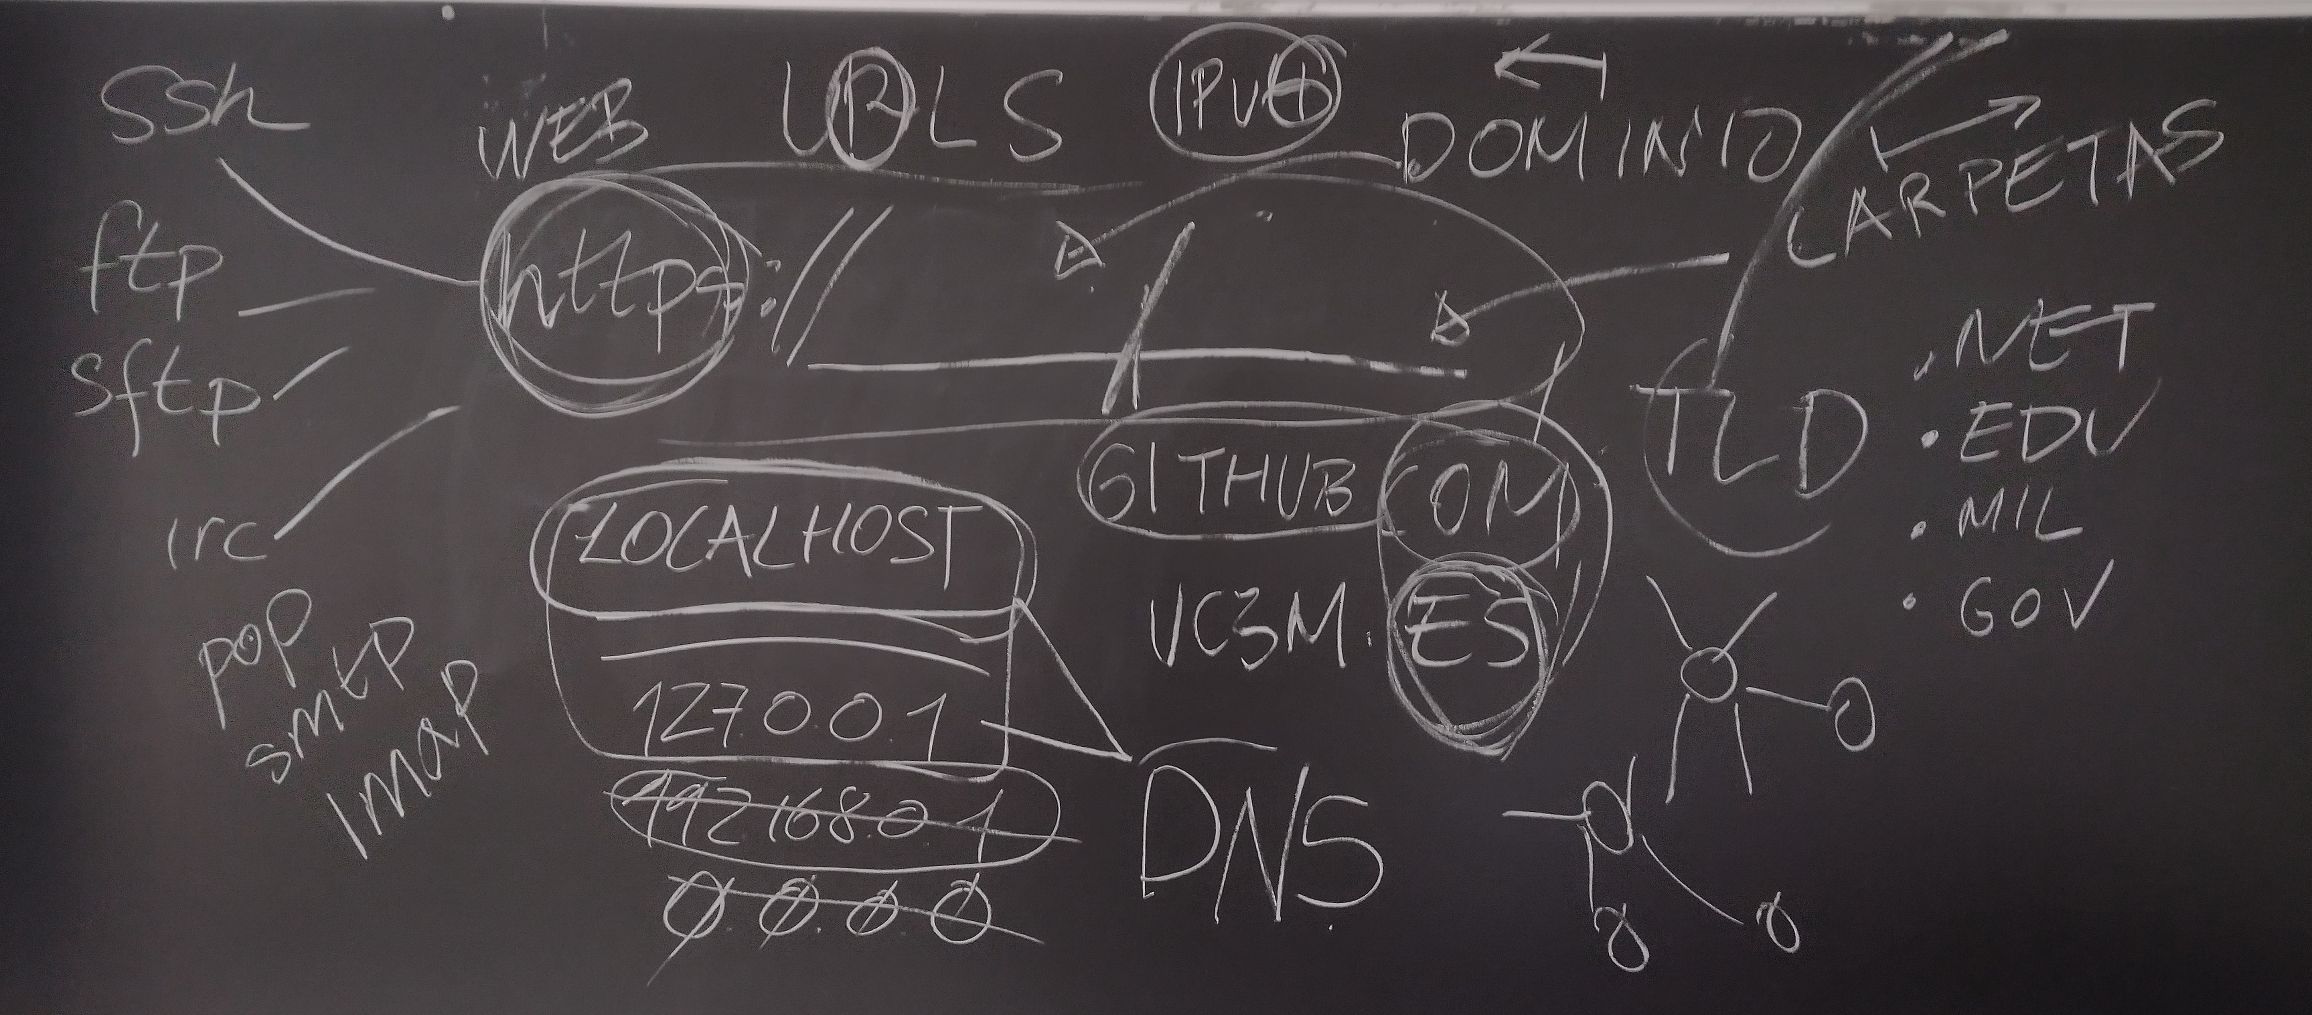 ssh
WEB
URLS
IPv6
DOMINIO
CARPETAS
ftp
https://
/
sftp
irc
pop
smtp
imap
LOCALHOST
127.0.0.1
192.168.0.1
0.0.0.0
GITHUB
COM
UC3M.
ES
DNS
TLD
.NET
.EDU
.MIL
.GOV